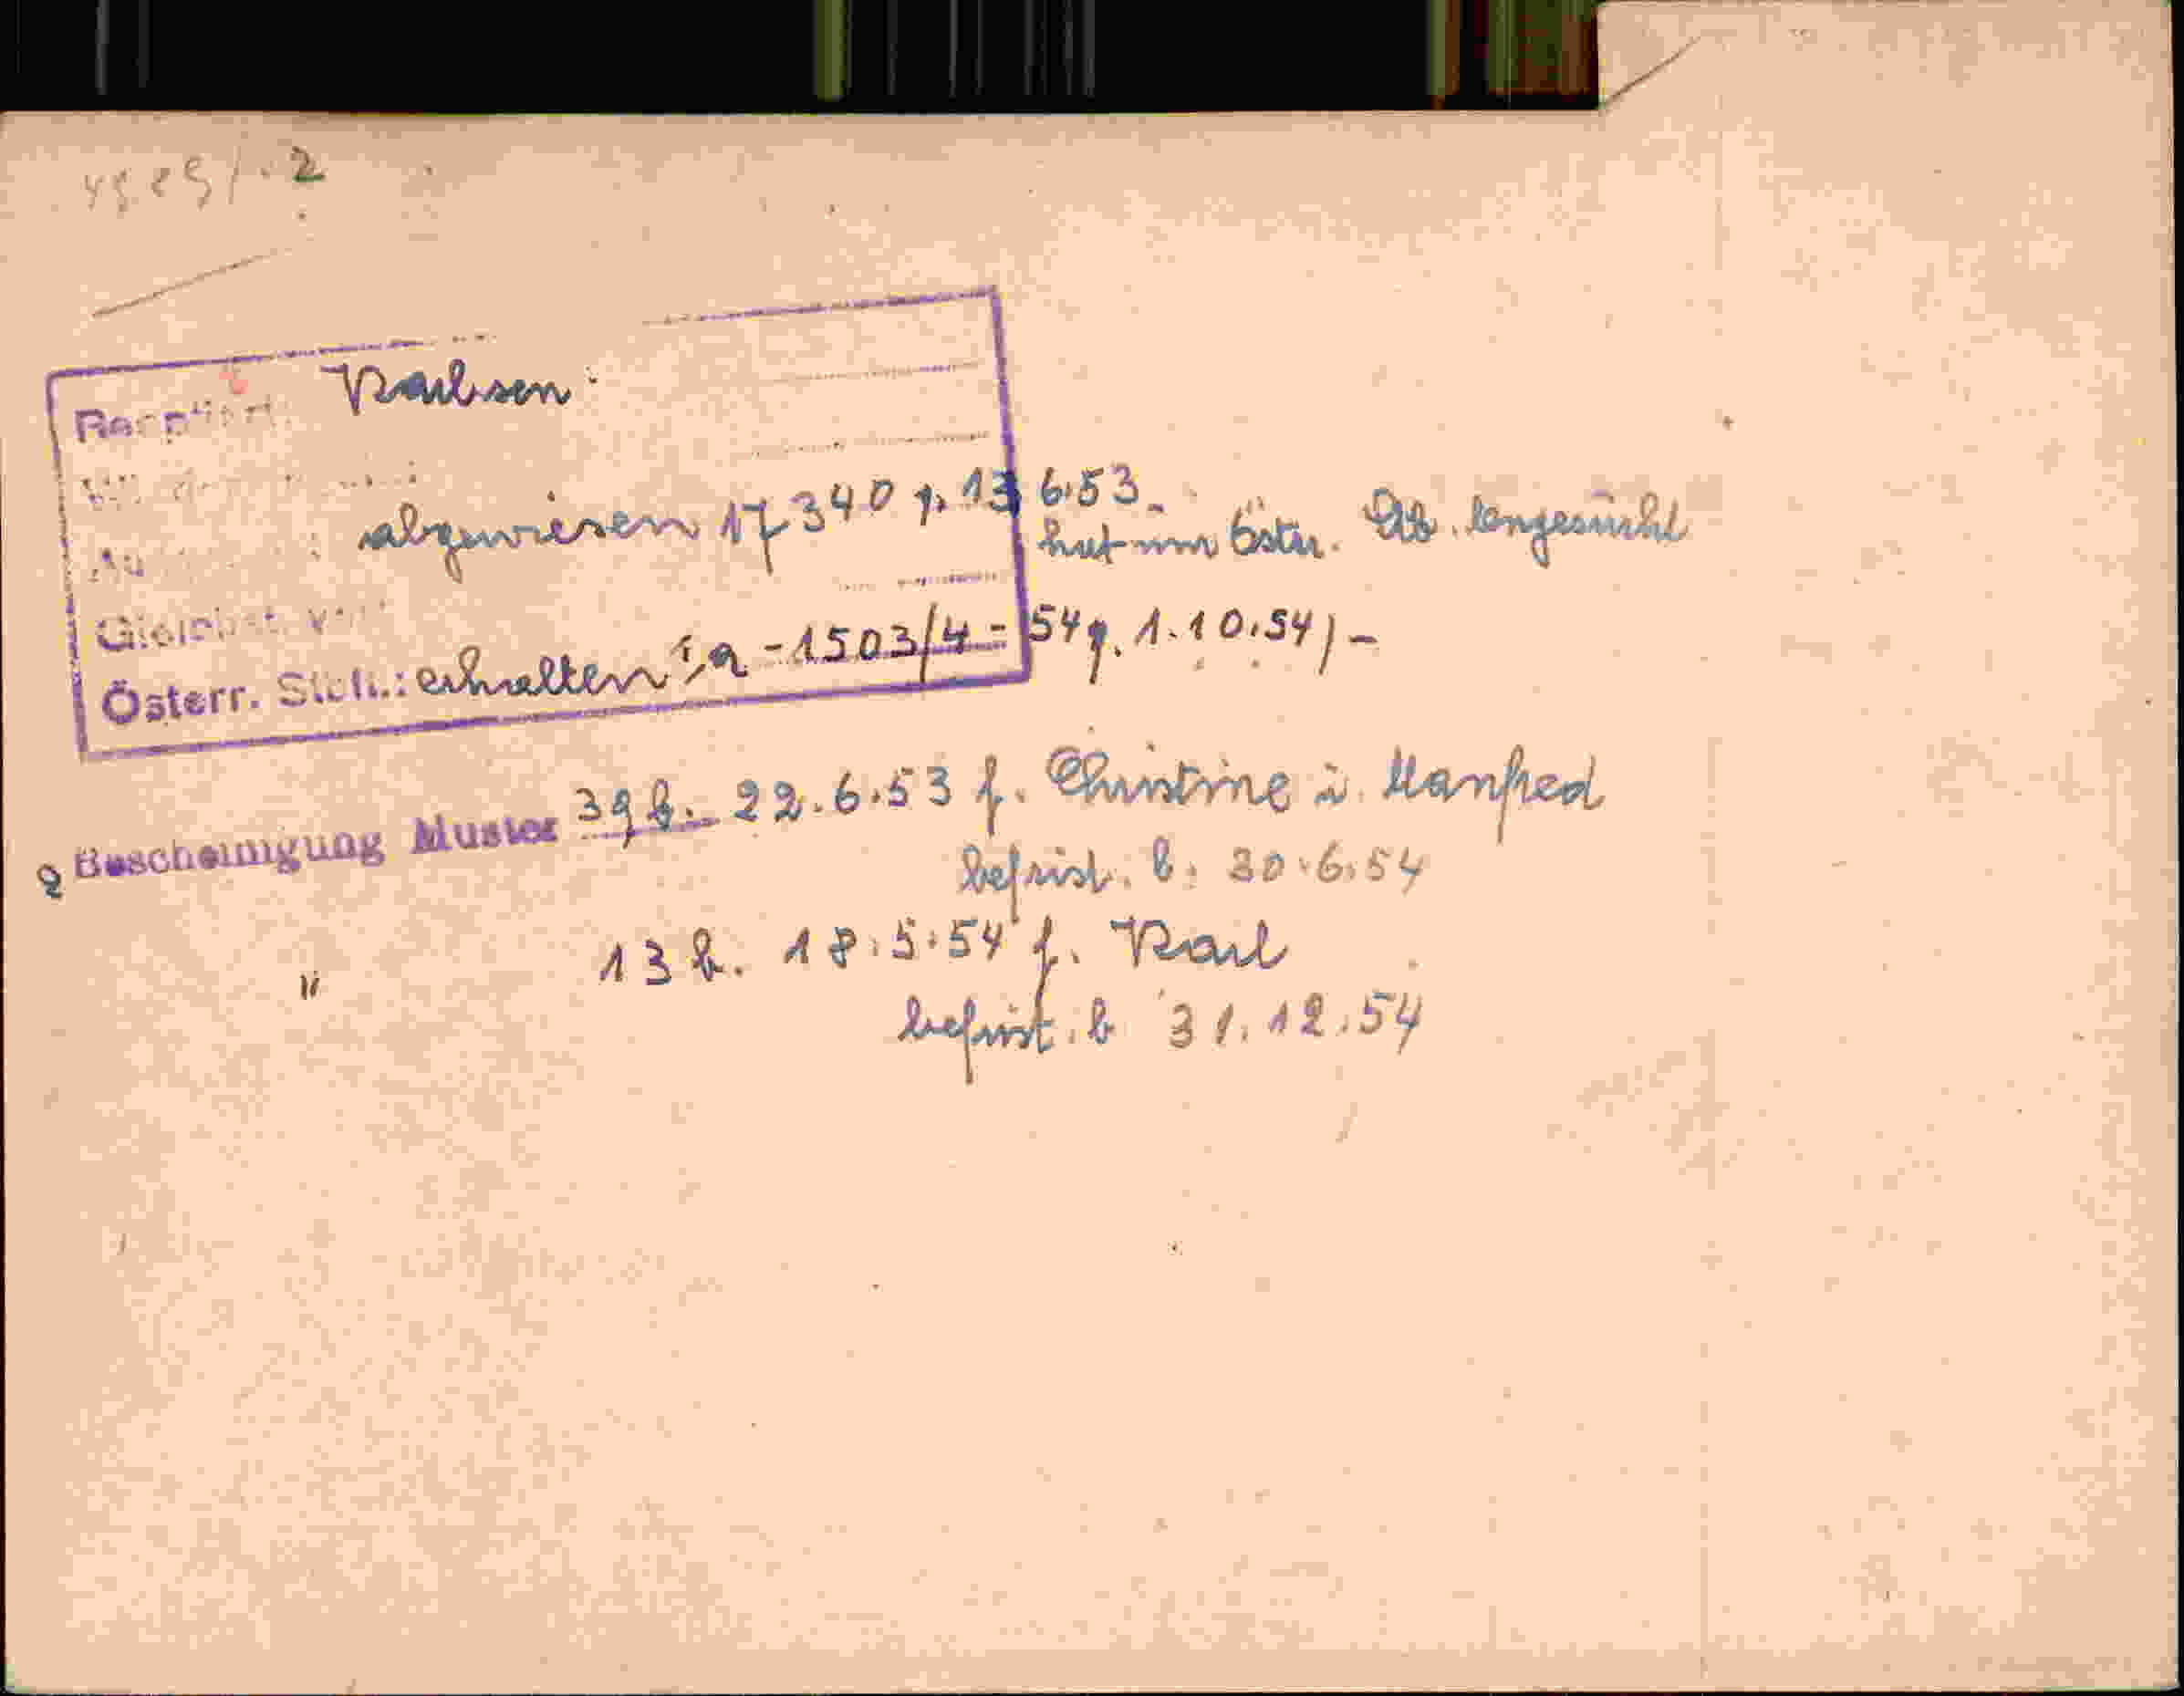 2
Karlsen
abgewiesen 17340 p. 13 6.53.
hat um Öster. Stb. angesucht
Österr. Stch.: erhalten i,a - 1503/4 - 54 p. 1.10.54) -
Bescheinigung Muster 39 b. 22.6.53 f. Christine u. Manfred
befrist. b. 30.6.54
" 13 b. 18.5.54 f. Karl
befrist. b 31.12.54